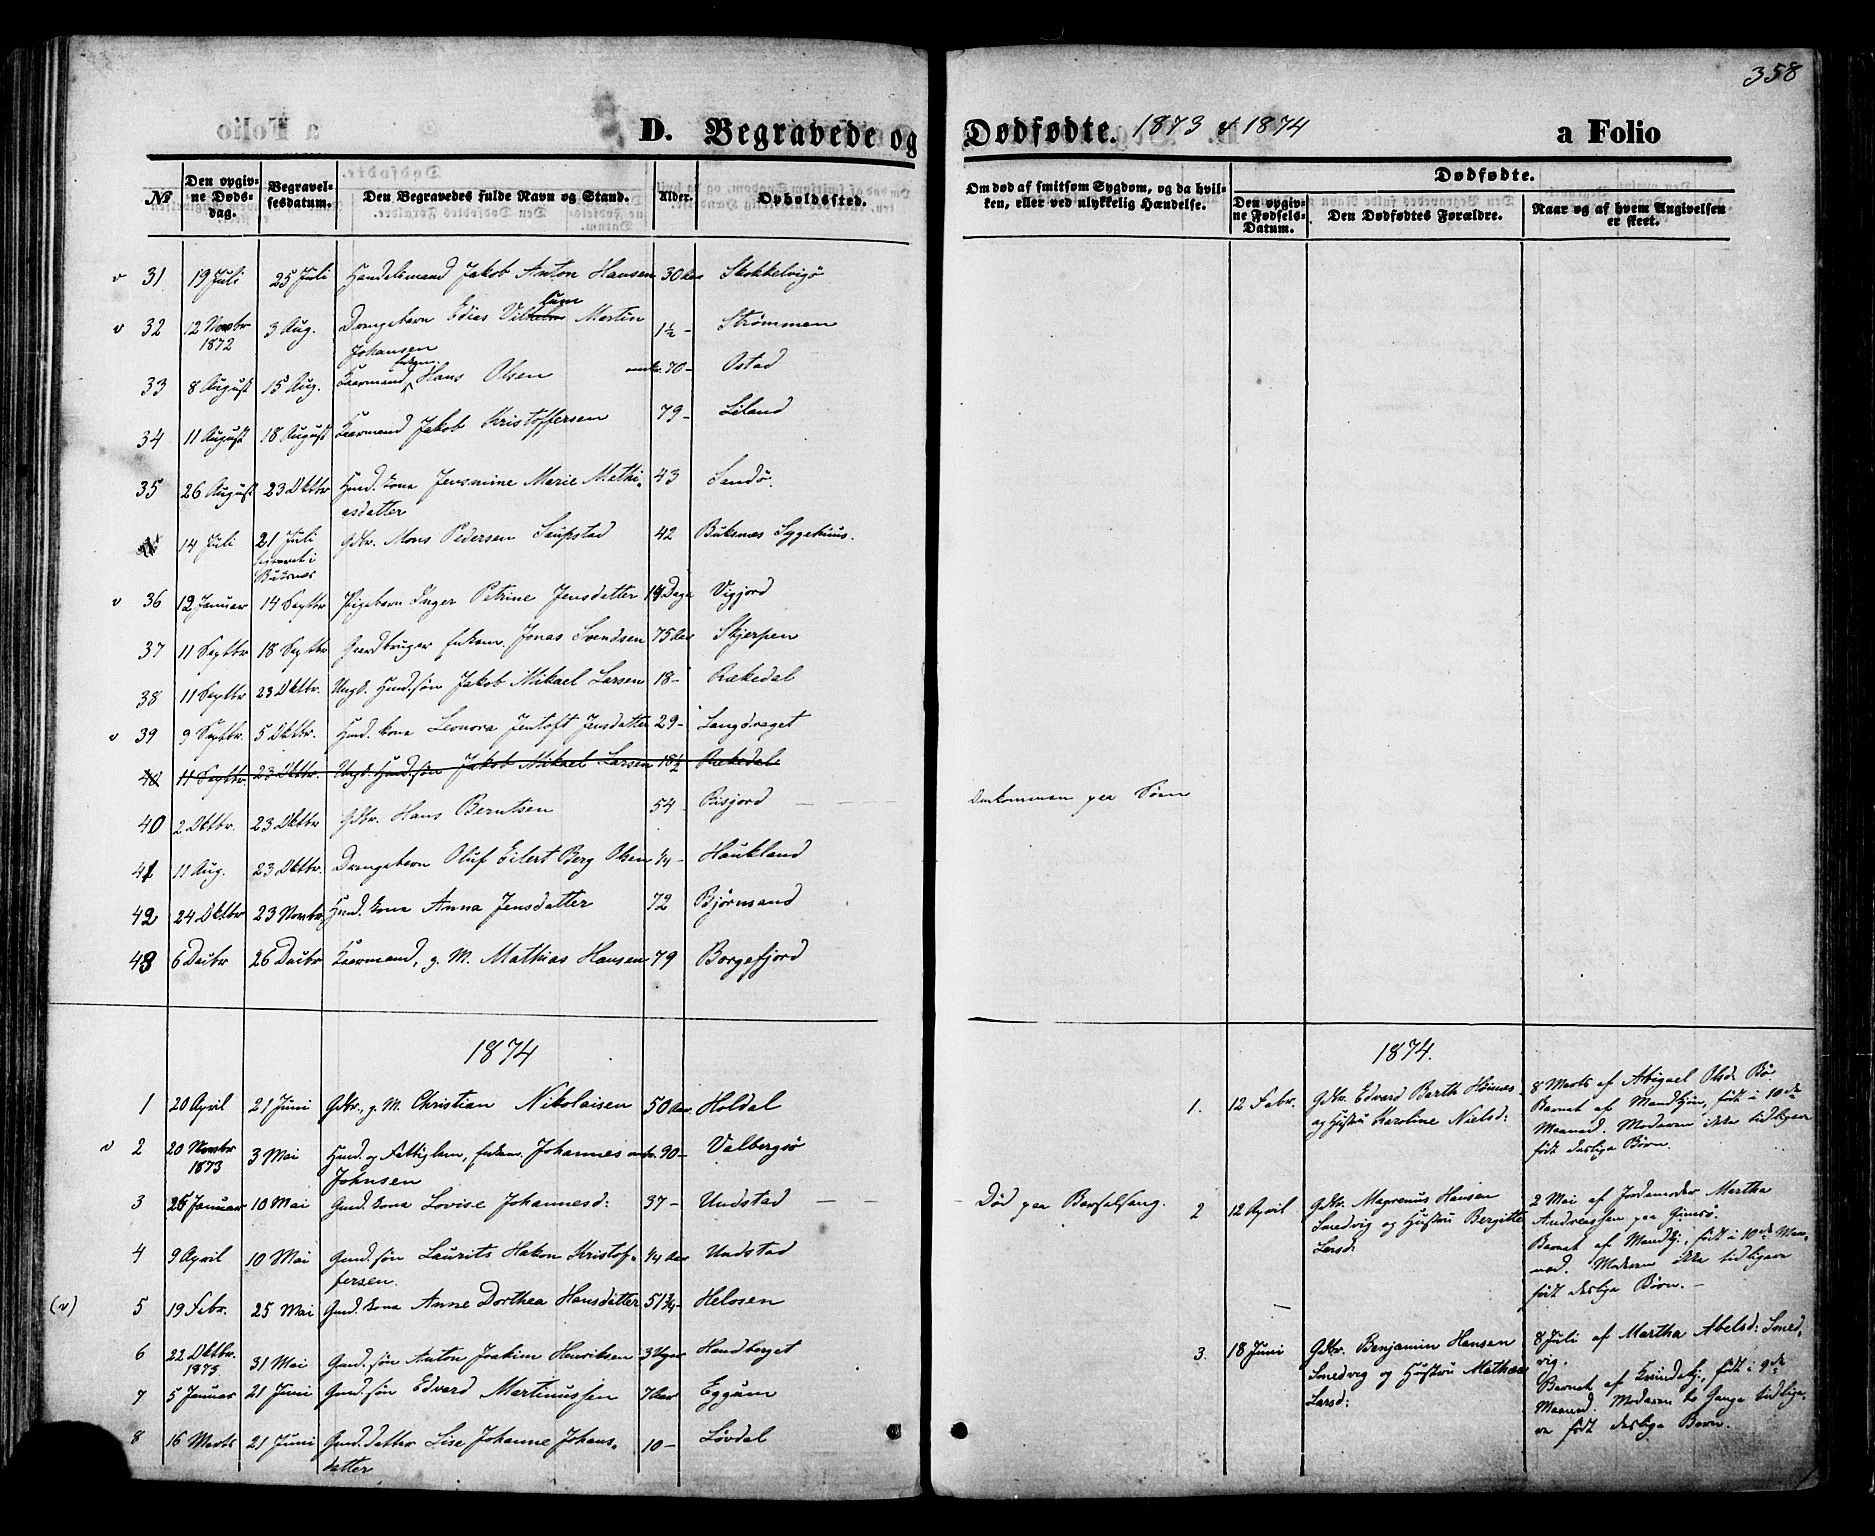 358
D. Begravede og Dødfødte. 1873 & 1874 a Folio
№ Den opgivne Dødsdag. Begravelsesdatum. Den Begravedes fulde Navn og Stand. Alder. Opholdssted.
Om død af smitsom Sygdom, og da hvilken, eller ved ulykkelig Hændelse.
Dødfødte.
Den opgivne Fødsels-Datum. Den Dødfødtes Forældre. Naar og af hvem Angivelsen er skeet.
v 31 19 Juli 25 Juli Handelsmand Jakob Anton Hansen 30 Aar
v 32 12 Novbr 1872 3 Aug. Drengebarn Edias Martin Johansen 1½ - Strømmen
33 8 August 15 Aug. Kaarmand, Hans Olsen 70 - Ostad
34 11 August 18 August Kaarmand Jakob Kristoffersen 79 - Liland
35 26 August 23 Oktbr Hmd. kone Jensmine Marie Mathiasdatter 43 Sandö.
14 Juli 21 Juli i Buksnes Gdbr. Mons Pedersen Saupstad 42 Buksnæs Sygehuus.
v 36 12 Januar 14 Septbr Pigebarn Inger Petrine Jensdatter 14 Dage Vigjord
37 11 Septbr 18 Septbr Gaardbruger Enkem. Jonas Svendsen 75 Aar Skjerpen
38 11 Septbr 23 Oktbr. Ungk. Hmd. søn Jakob Mikael Larsen 18 - Rækedal
v 39 9 Septbr. 5 Oktbr. Hmd. kone Leonora Jentoft Jensdatter 29 - Langdraget
40 11 Septbr. 23 Oktbr. Ungk. Hmd. søn Jakob Mikael Larsen 18½ Rækedal
40 2 Oktbr. 23 Oktbr Gdbr. Hans Berntsen 54 - Risjord - Omkommen paa Søen
41 11 Aug. 23 Oktbr. Drengebarn Oluf Eilert Berg Olsen ¼ - Haukland
42 24 Oktbr 23 Novbr. Hmd. kone Anna Jensdatter 72 Bjørnsand
43 6 Decbr 26 Decbr Kaarmand, g. M. Mathias Hansen 79 Borgefjord
1874
1 20 April 21 Juni Gdbr., g. M. Christian Nikolaisen 50 Aar Holdal
v 2 20 Novbr 1873 3 Mai Hmd. og Fattiglem, Enkem. Johannes Johnsen 90 - Valbergsø
3 25 Januar 10 Mai Gmd. kone Lovise Johannesd: 37 - Undstad - Död paa Barselseng.
4 9 April 10 Mai Gmd. søn Laurits Hakon Kristoffersen. ¼ Aar Undstad
(v) 5 19 Febr. 25 Mai Gmd. kone Anne Dorthea Hansdatter 51¾ - Helosen
6 22 Oktbr. 1873 31 Mai Gmd. søn Anton Joakim Henriksen 3 Uger Handberget
7 5 Januar 21 Juni Gmd. søn Edvard Martinussen 7 Aar Eggum
8 16 Marts 21 Juni Gmd. datter Lise Johanne Johansdatter 10 - Lövdal
1874.
1. 12 Febr. Gdbr. Edvard Barth Höines og Hustru Karoline Nielsd: 8 Marts af Abigael Olsd. Bö.
Barnet af Mandkjön, født i 10de
Maaned. Moderen ikke tidligere
født deslige Børn.
2 12 April Gdbr. Magrenus Hansen
Smedvig og Hustru Bergitte
Larsd: 2 Mai af Jordemoder Martha
Andreassen paa Gimsø.
Barnet af Mandkj., født i 10de Maaned.
Moderen ikke tidligere
født deslige Børn. -
3. 18 Juni Gdbr. Benjamin Hansen
Smedvig og Hustru Mathea
Larsd: 8 Juli af Martha Abelsd: Smedvig.
Barnet af Kvindekj., født i 9de
Maaned. Moderen to Gange tidligere
født deslige Børn.